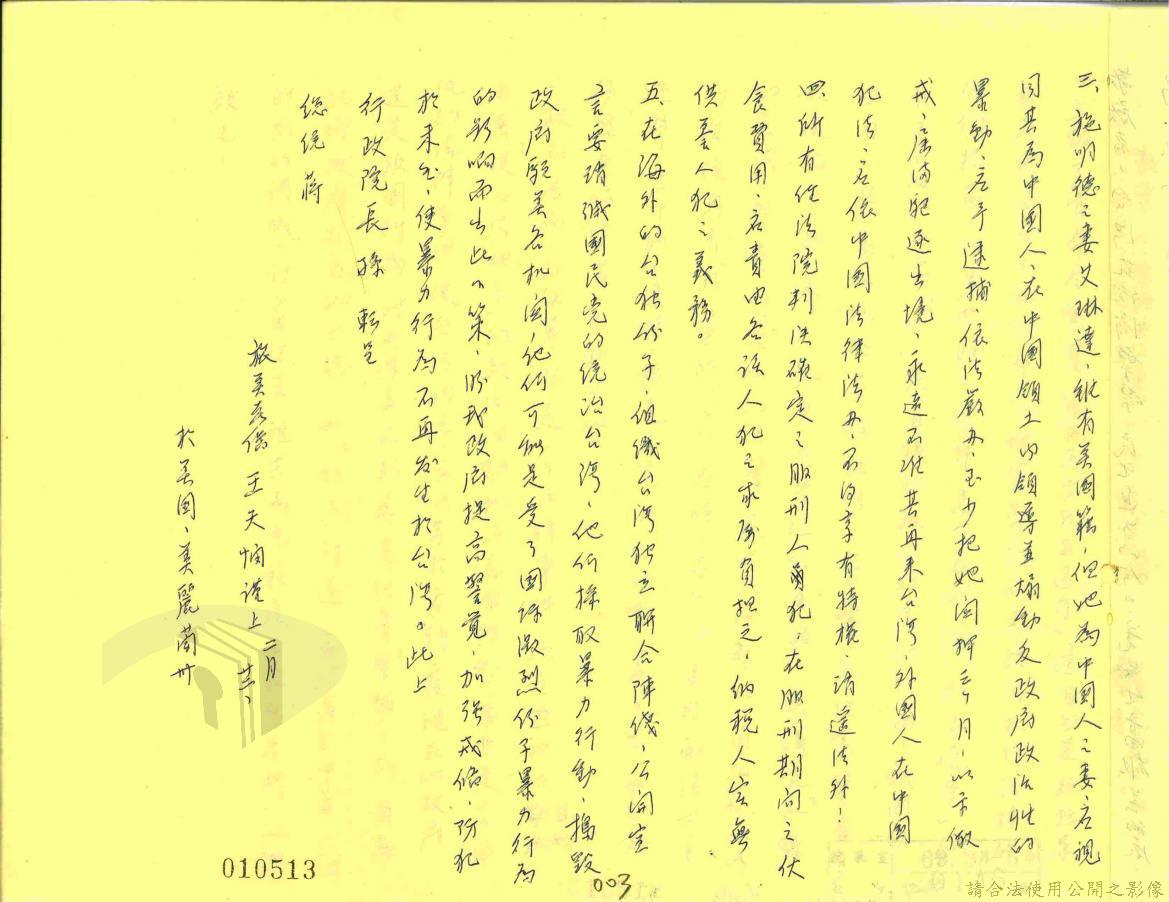 三、施明德之妻艾琳達,雖有美國籍,但她為中國人之妻,应視
同其為中國人,在中國領土內領導並煽動反政府政治性的
暴動,应予逮捕,依法嚴办,至少把她関押三个月,以示儆
戒,届满驱逐出境,永遠不准其再来台湾,外國人在中國
犯法,应依中國法律法办,不得享有特权,逍遥法外!
四、所有经法院判决確定之服刑人犯,在服刑期间之伙
食費用,应責由各該人犯之家属負担之,納税人实無
供养人犯之義務。
五、在海外的台独份子,组織台湾独立联合陣线,公開宣
言要消滅國民党的统治台湾,他们採取暴力行動,搗毀
政府駐美各机関,他们可能是受了國际激烈份子暴力行為
的影响而出此下策,盼我政府提高警覚,加强戒俻,防犯
於未然,使暴力行為不再发生於台湾。此上
行政院長孫 転呈
總统 蒋
旅美 王天 谨上 二月廿二、
於美国、美麗蘭州
010513
003
請合法使用公開之影像